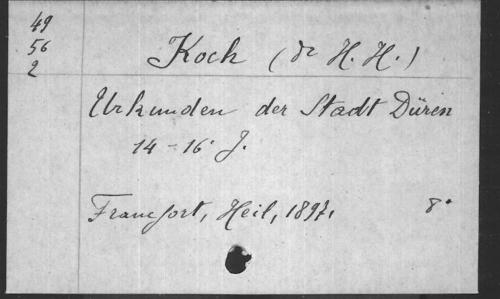 49
56
2
Koch (Dr H. H.)
Urkunden der Stadt Düren
14-16. J.
Francfort, Heil, 1897,
8°